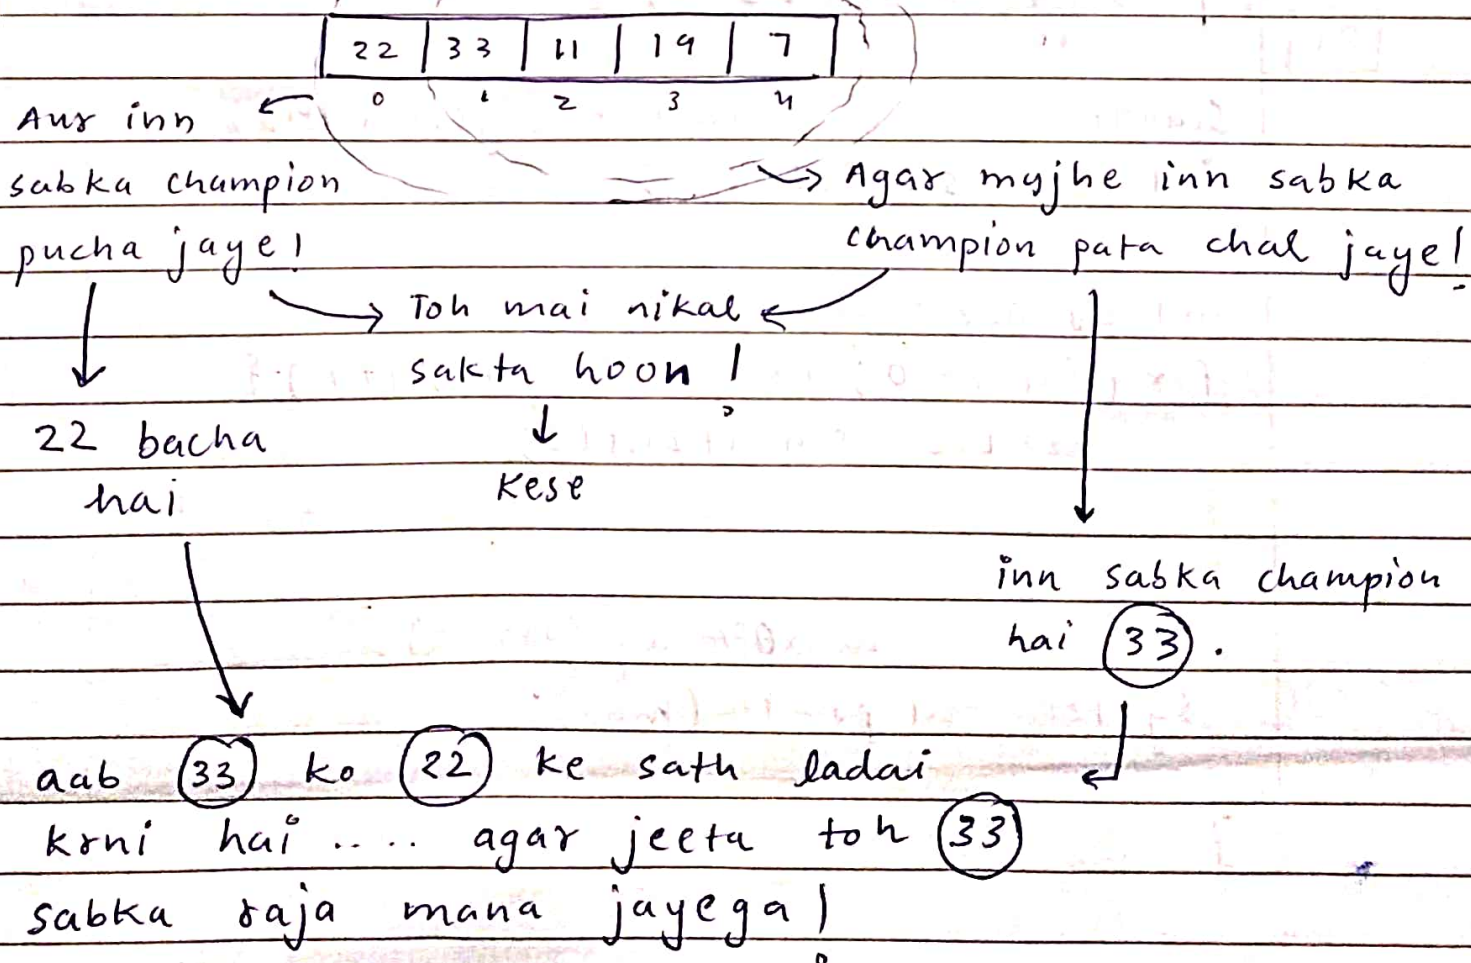 22 33 11 19 7
0 1 2 3 4
Aur inn
sabka champion
pucha jaye!
Agar mujhe inn sabka
champion pata chal jaye!
Toh mai nikal
sakta hoon!
22 bacha
hai
Kese
inn sabka champion
hai 33.
aab 33 ko 22 ke sath ladai
krni hai ..... agar jeeta toh 33
sabka raja mana jayega!